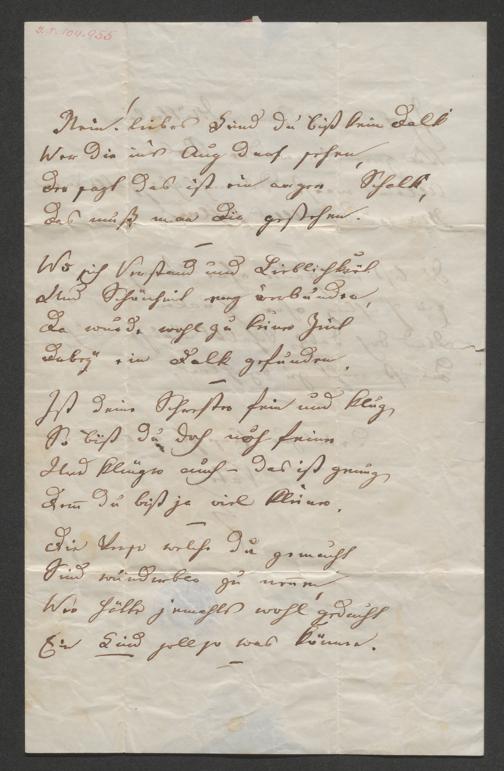 I.N. 104.955
Nein! liebes Kind du bist kein Dalk
Wer dir in's Aug darf sehen,
Der sagt das ist ein arger Schalk,
Das muß man dir gestehen.
Wo sich Verstand und Lieblichkeit
Und Schönheit eng verbunden,
Da wurde wohl zu keiner Zeit
Dabey ein Dalk gefunden.
Ist deine Schwester fein und klug,
So bist du doch noch feiner
Und klüger auch – das ist genug,
Denn du bist ja viel kleiner.
Die Verse welche du gemacht
Sind wunderbar zu nennen,
Wer hätte jemahls wohl gedacht
Ein Kind soll so was können.